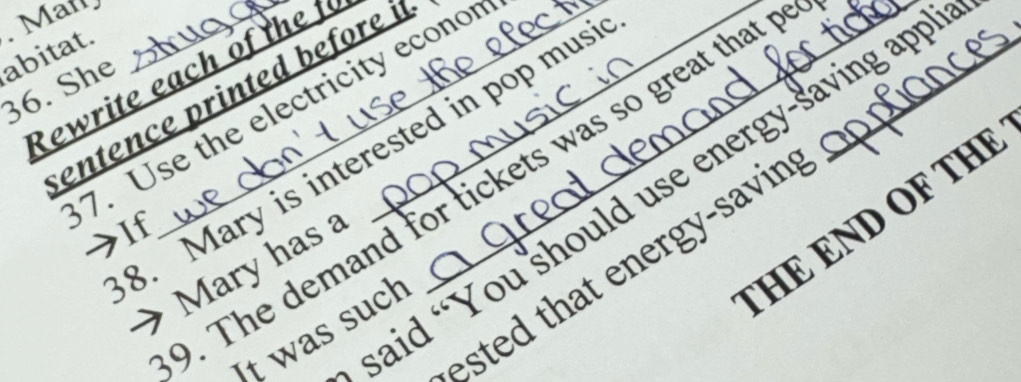 Many
habitat.
36. She
Rewrite each of the
sentence printed before it.
37. Use the electricity
→If we don't use the
38. Mary is interested in pop music.
→ Mary has a pop music in
39. The demand for tickets was so great that
It was such a great demand for
said “You should use energy-saving
that energy-saving appliances.
THE END OF THE